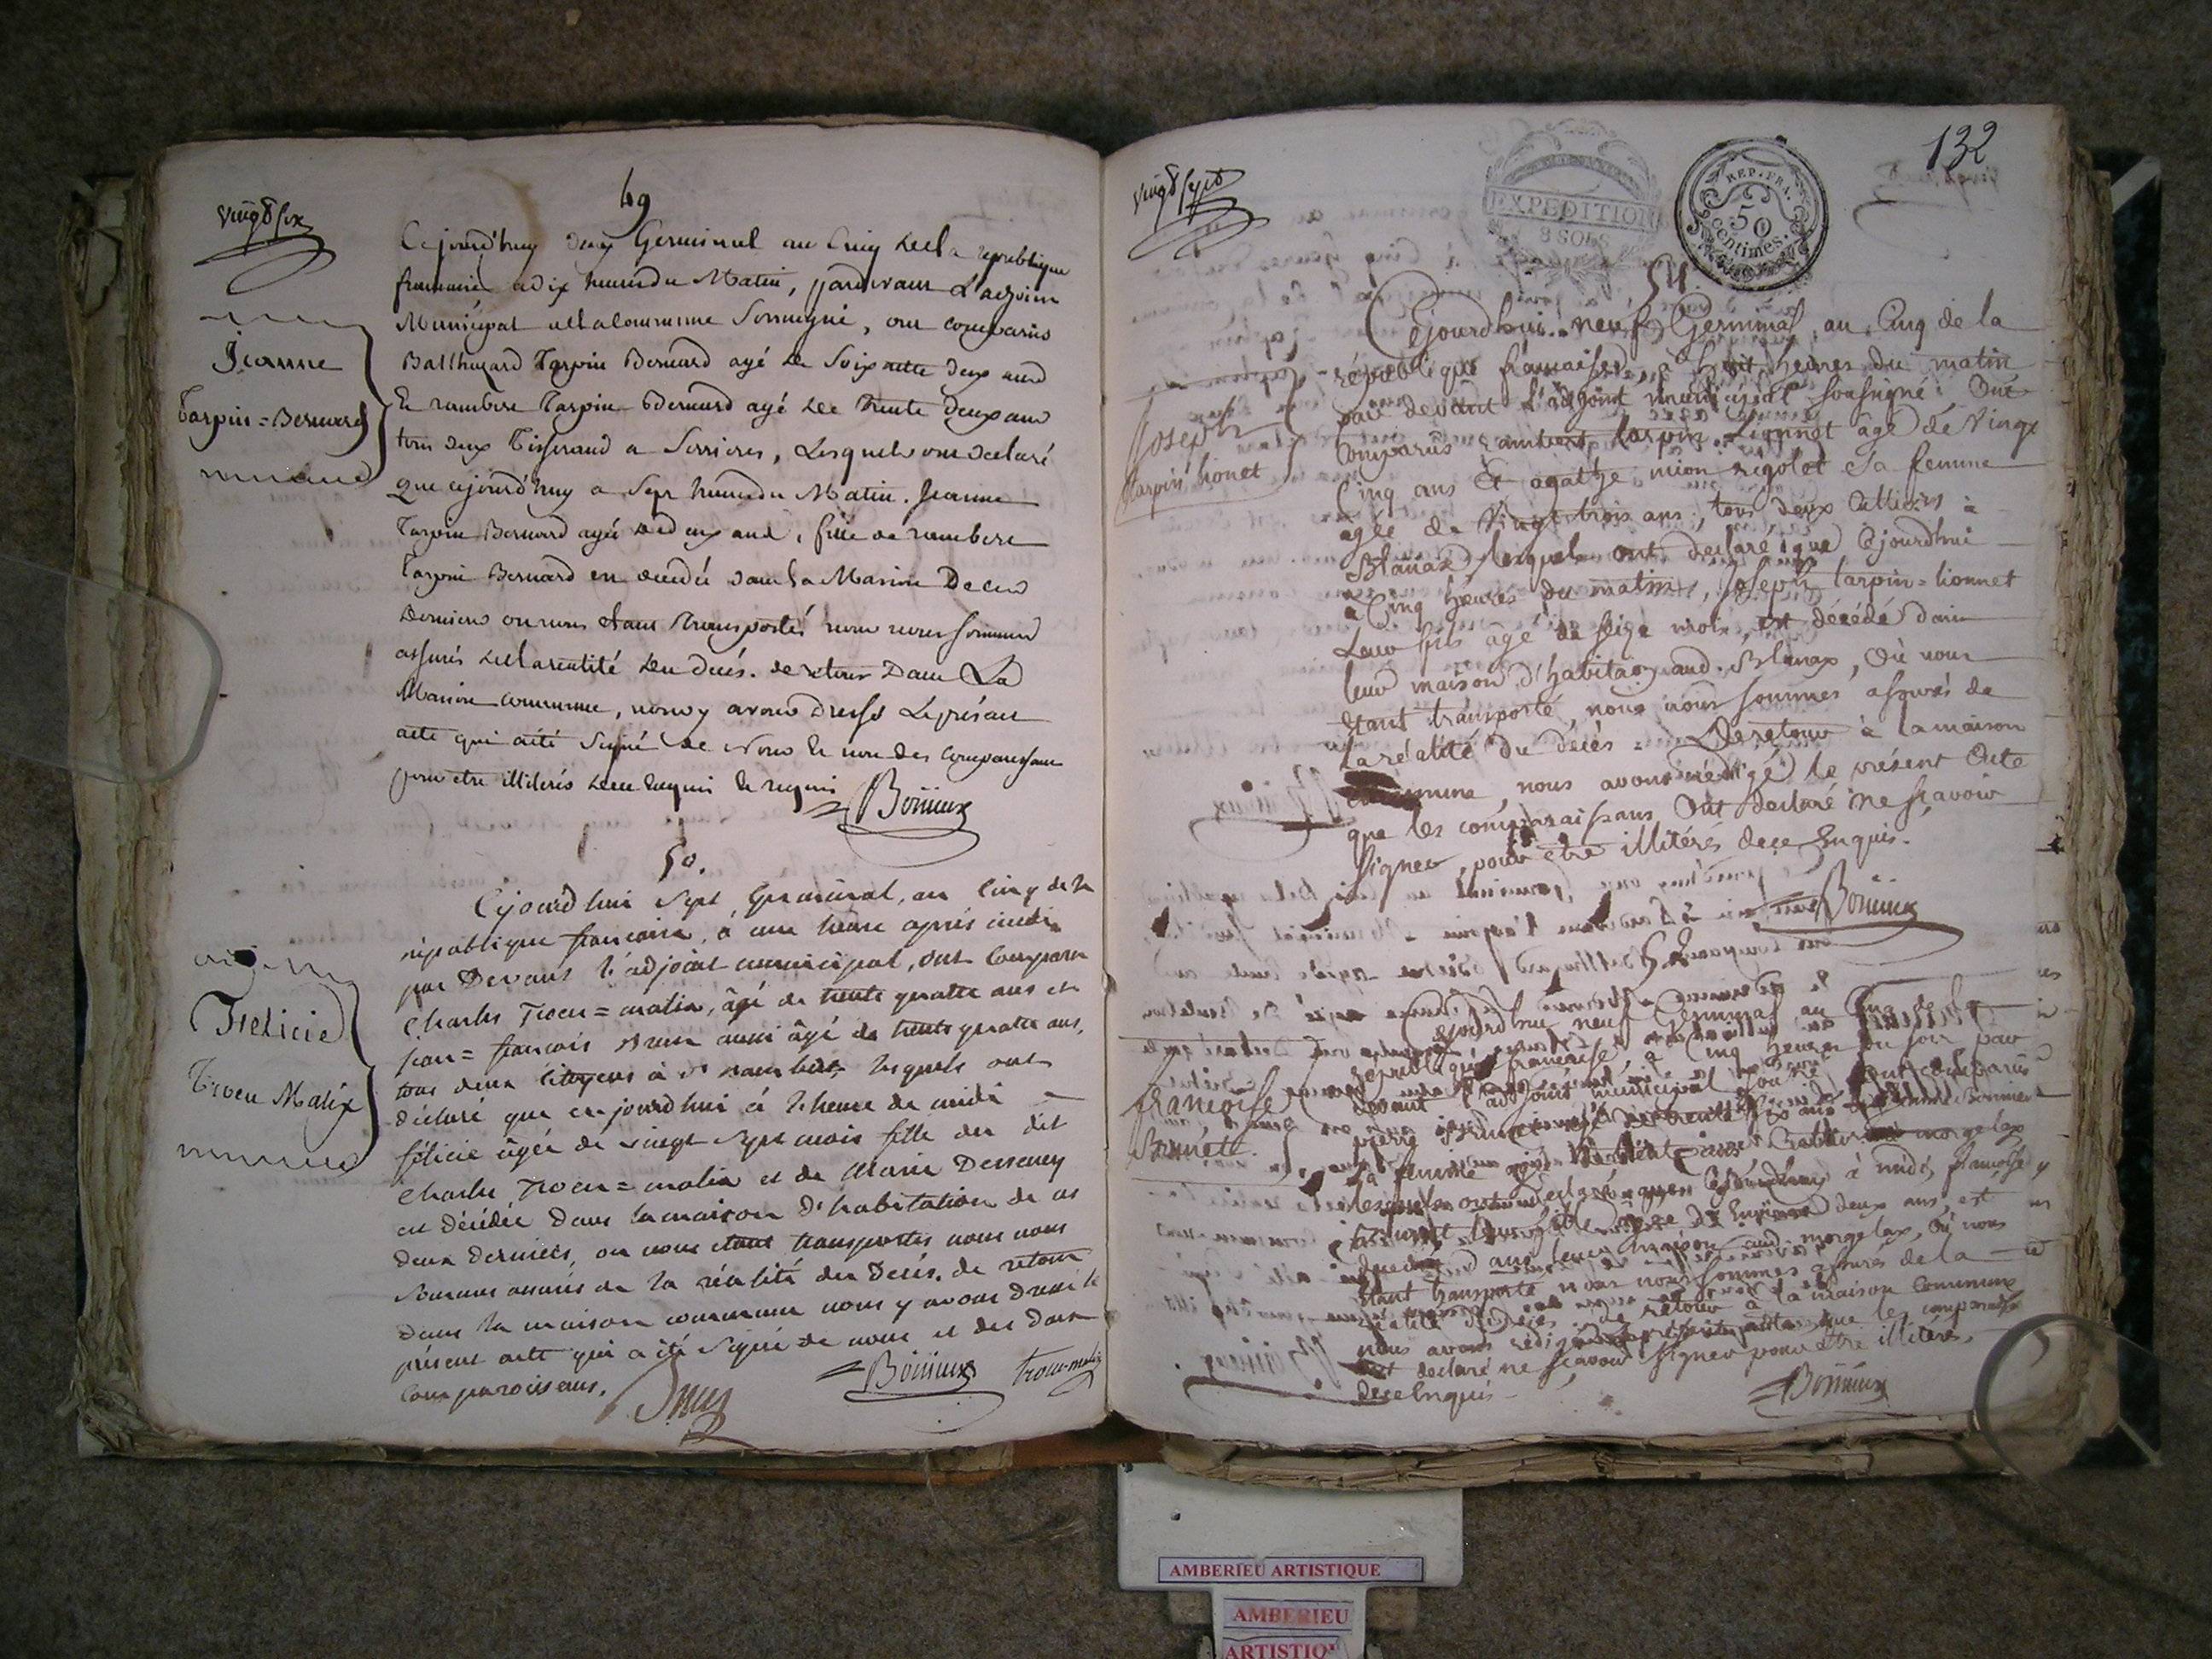 vingt six
49
Cejourd'huy deux Germinal an Cinq de la republique
francaise a dix heures du Matin, pardevant L'adjoint
Municipal de la Commune Soussigné, ont comparus
Balthazard Tarpin Bernard agé de Soixante deux ans
Et rambert Tarpin Bernard agé de trente deux ans
tous deux Tisserand a Serrieres, Lesquels ont declaré
que cejourd'huy a Sept heures du Matin. Jeanne
Tarpin Bernard agée de deux ans, fille de rambert
Tarpin Bernard en decedée dans la Maison De ces
Derniers ou nous etant transportés nous nous sommes
assurés de la realité du decés. de retour Dans La
Maison commune, nous y avons dressé Le présent
acte qui a été Signé de Nous Et non des Comparessant
pour etre illiterés de ce Enquis Et requis
Bonieux
Jeanne
Tarpin = Bernard
50.
Cejourd'hui Sept Germinal, an Cinq de la
république francaise, à une heure après midi
par Devant l'adjoint municipal, ont Comparu
Charles Troeu = malix, âgé de trente quatre ans et
jean = francois aussi âgé de trente quatre ans,
tous deux Citoyens à St rambert, lesquels ont
déclaré que ce jourd'hui à l'heure de midi
félicie âgée de vingt Sept mois fille du dit
Charles Troeu = malix et de Marie
est décédée dans la maison d'habitation de ces
deux derniers, ou nous etant transportés nous nous
sommes assurés de la réalité du Decés. de retour
dans la maison commune nous y avons dressé le
présent acte qui a été Signé de nous et des dits
Comparoissans.
Bonieux troeu-malix
Felicie
Troeu Malix
vingt sept
132
EXPEDITION
8 SOLS
REP. FRA.
50
centimes.
51.
Cejourdhui neuf Germinal, an Cinq de la
république francaise, à huit heures du matin
par devant l'adjoint municipal soussigné. Ont
Comparus rambert tarpin Lionnet âgé de Vingt
Cinq ans Et agathe mion rigolet Sa femme
agée de Vingt trois ans, tous deux Cultivrs à
Blanax lesquels ont declaré que Cejourdhui
a Cinq heures du matin, Joseph tarpin = lionnet
Leur fils âgé de seize mois, est décédé dans
leur maison d'habitaon aud. Blanax, Où nous
etant transporté, nous nous sommes assurés de
la réalité du décés. De retour à la maison
Commune, nous avons rédigé le présent Acte
que les comparaissans Ont declaré ne scavoir
signer, pour être illitérés de ce Enquis.
Bonieux
Joseph
tarpin lionet
52.
Cejourdhui neuf Germinal an Cinq de la
republique francaise, à Cinq heures du soir par
devant l'adjoint municipal ont comparus
pierre
Sa femme morgelax
lesquels ont declaré que Cejourdhui à midi, francoise
leur fille agée de Environ deux ans, est
decedée dans leur maison aud. morgelax, Où nous
etant transporté nous nous sommes assurés de la
réalité du décés. De retour à la maison commune
nous avons rédigé le présent acte que les comparaiss
ont declaré ne scavoir signer pour être illitérés.
de ce Enquis
Bonieux
francoise
AMBERIEU ARTISTIQUE
AMBERIEU
ARTISTIQU